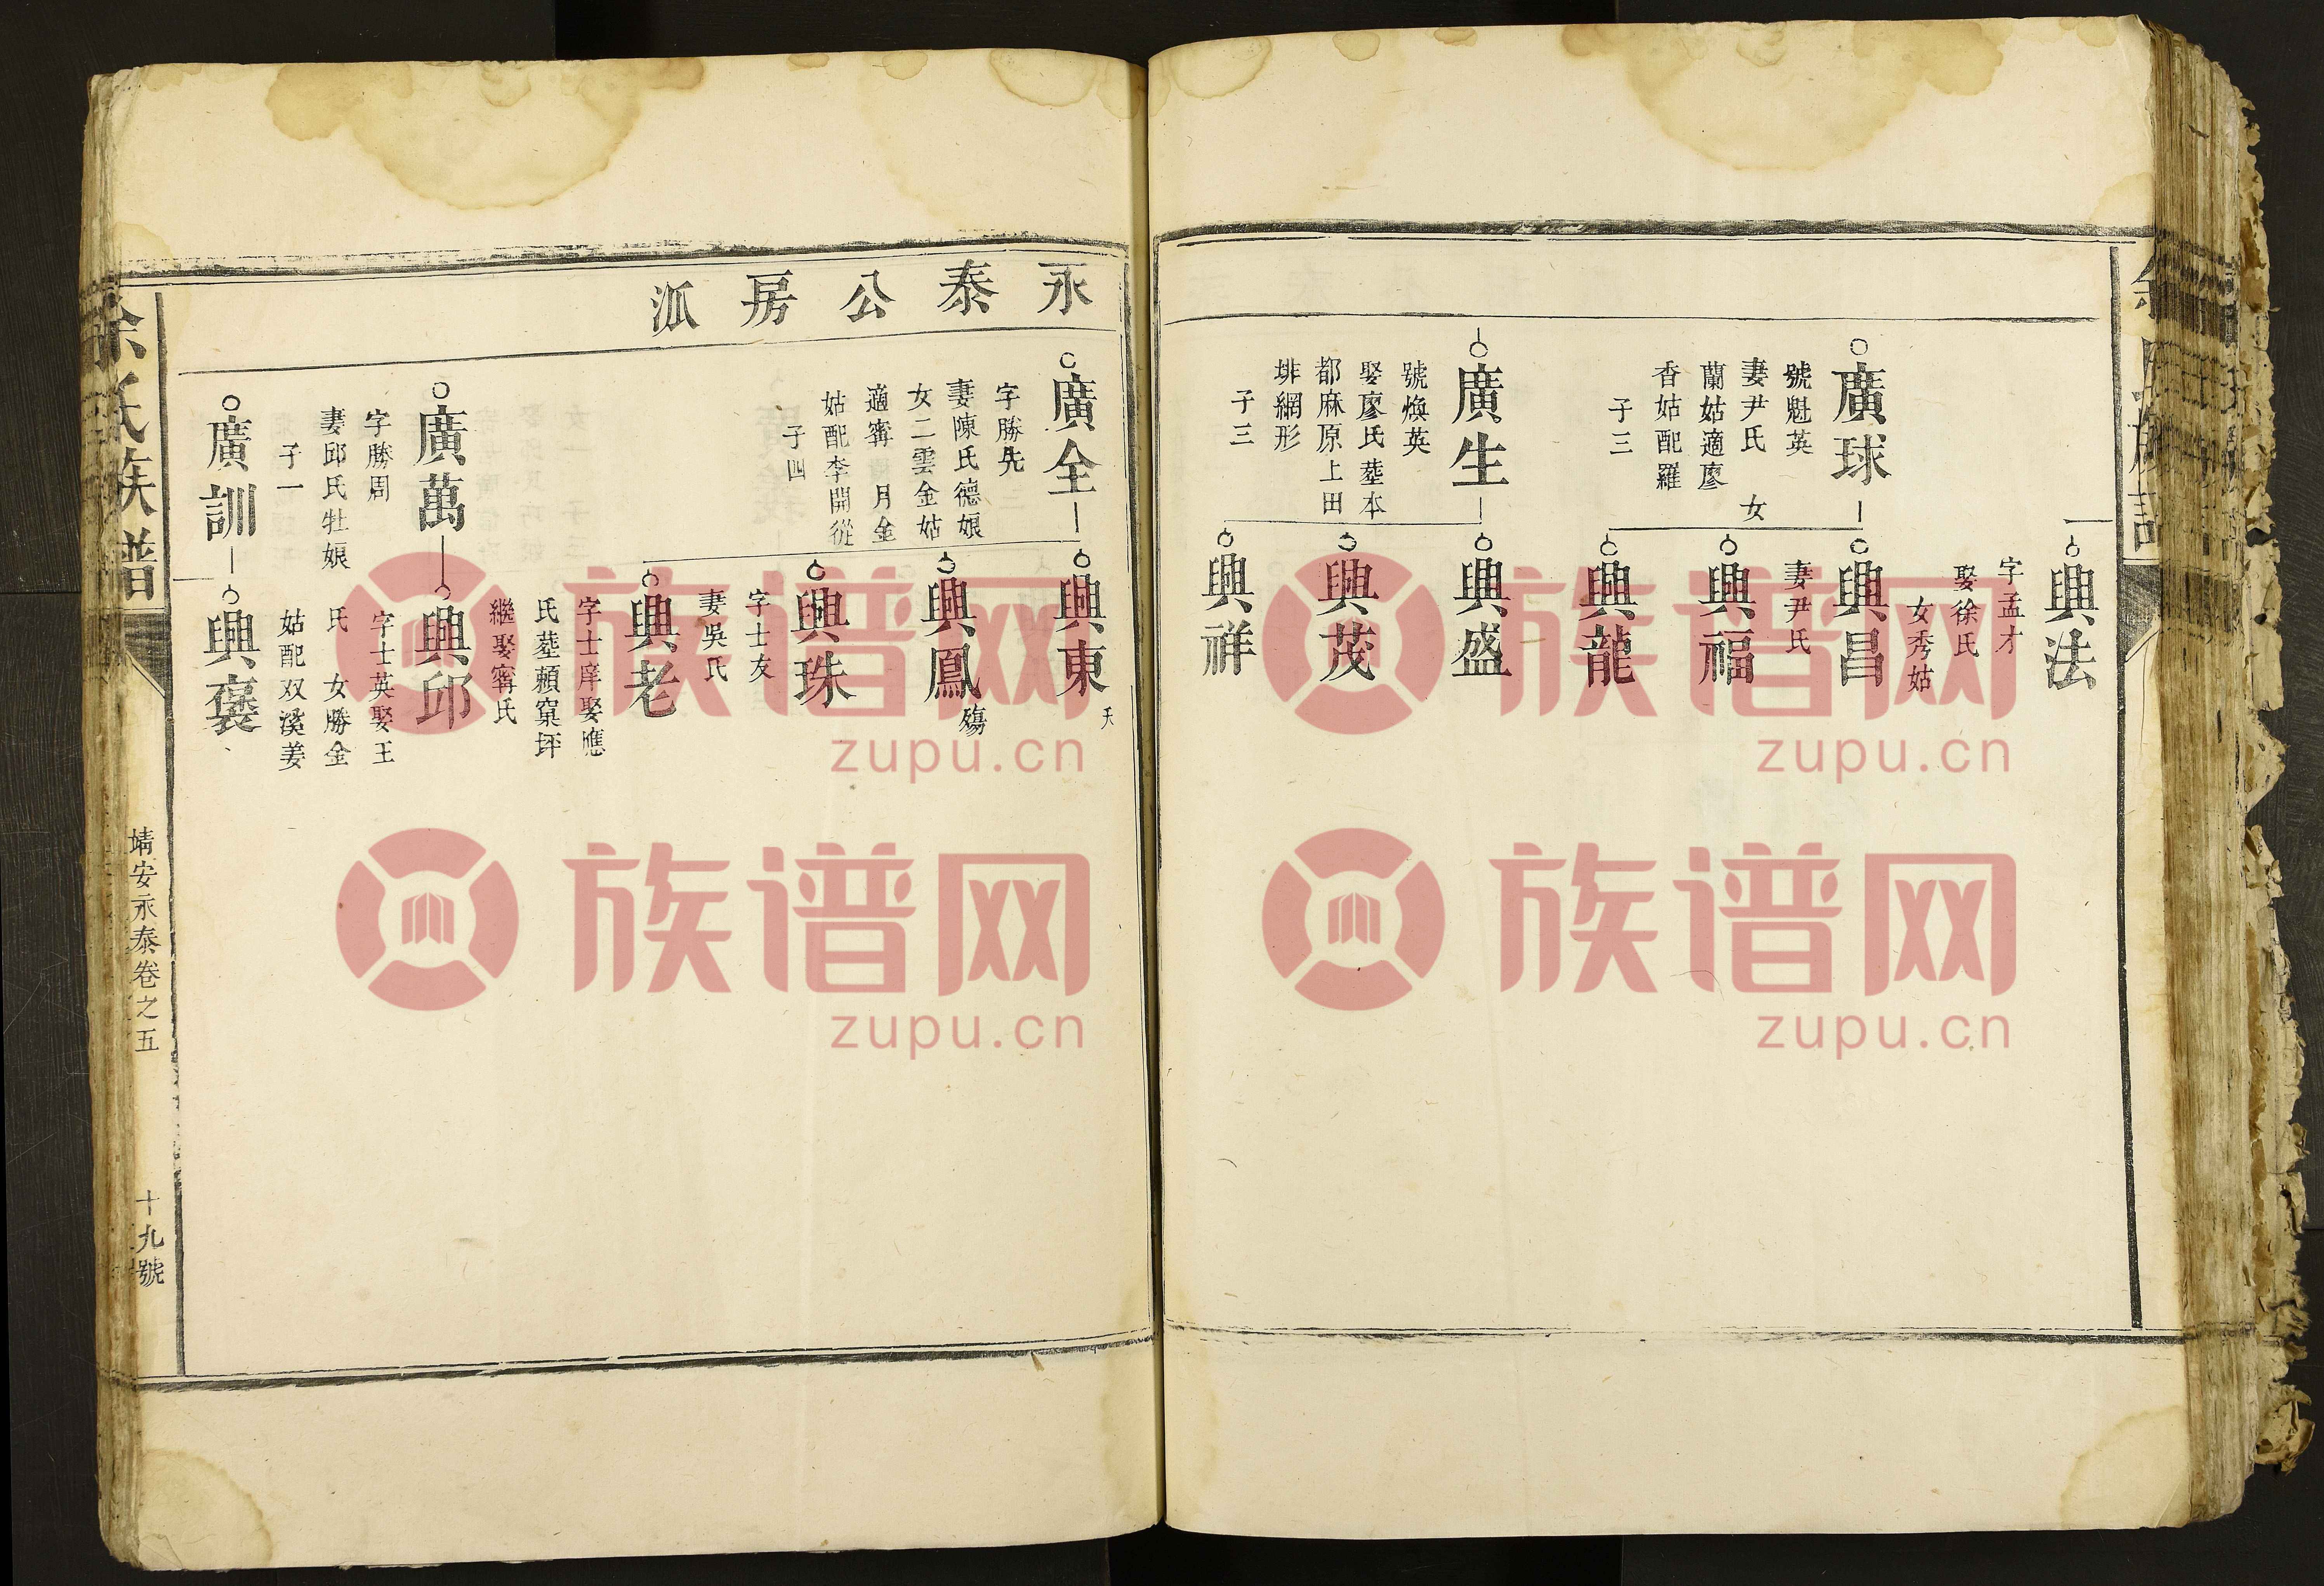 興法
字孟才
娶徐氏
女秀姑
廣球
號魁英
妻尹氏 女
蘭姑適廖
香姑配羅
子三
興昌
妻尹氏
興福
興龍
廣生
號煥英
娶廖氏塟本
都麻原上田
排網形
子三
興盛
興茂
興祥
永泰公房派
廣全
字勝先
妻陳氏德娘
女二雲金姑
適甯 月金
姑配李開從
子四
興東
夭
興鳳
殤
興珠
字士友
妻吳氏
興老
字士庠娶應
氏塟賴窠坪
繼娶甯氏
廣萬
字勝周
妻邱氏牡娘
子一
興邱
字士英娶王
氏 女勝金
姑配双溪姜
廣訓
興褒
余氏族譜
靖安永泰卷之五
十九號
族谱网
zupu.cn
族谱网
zupu.cn
族谱网
zupu.cn
族谱网
zupu.cn